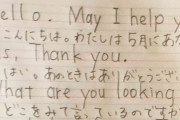 ello. May I help y
こんにちは。わたしは5月にあな
s, Thank you.
はい。あのときはありがとうござ
hat are you looking
どこをみて言っているのですか